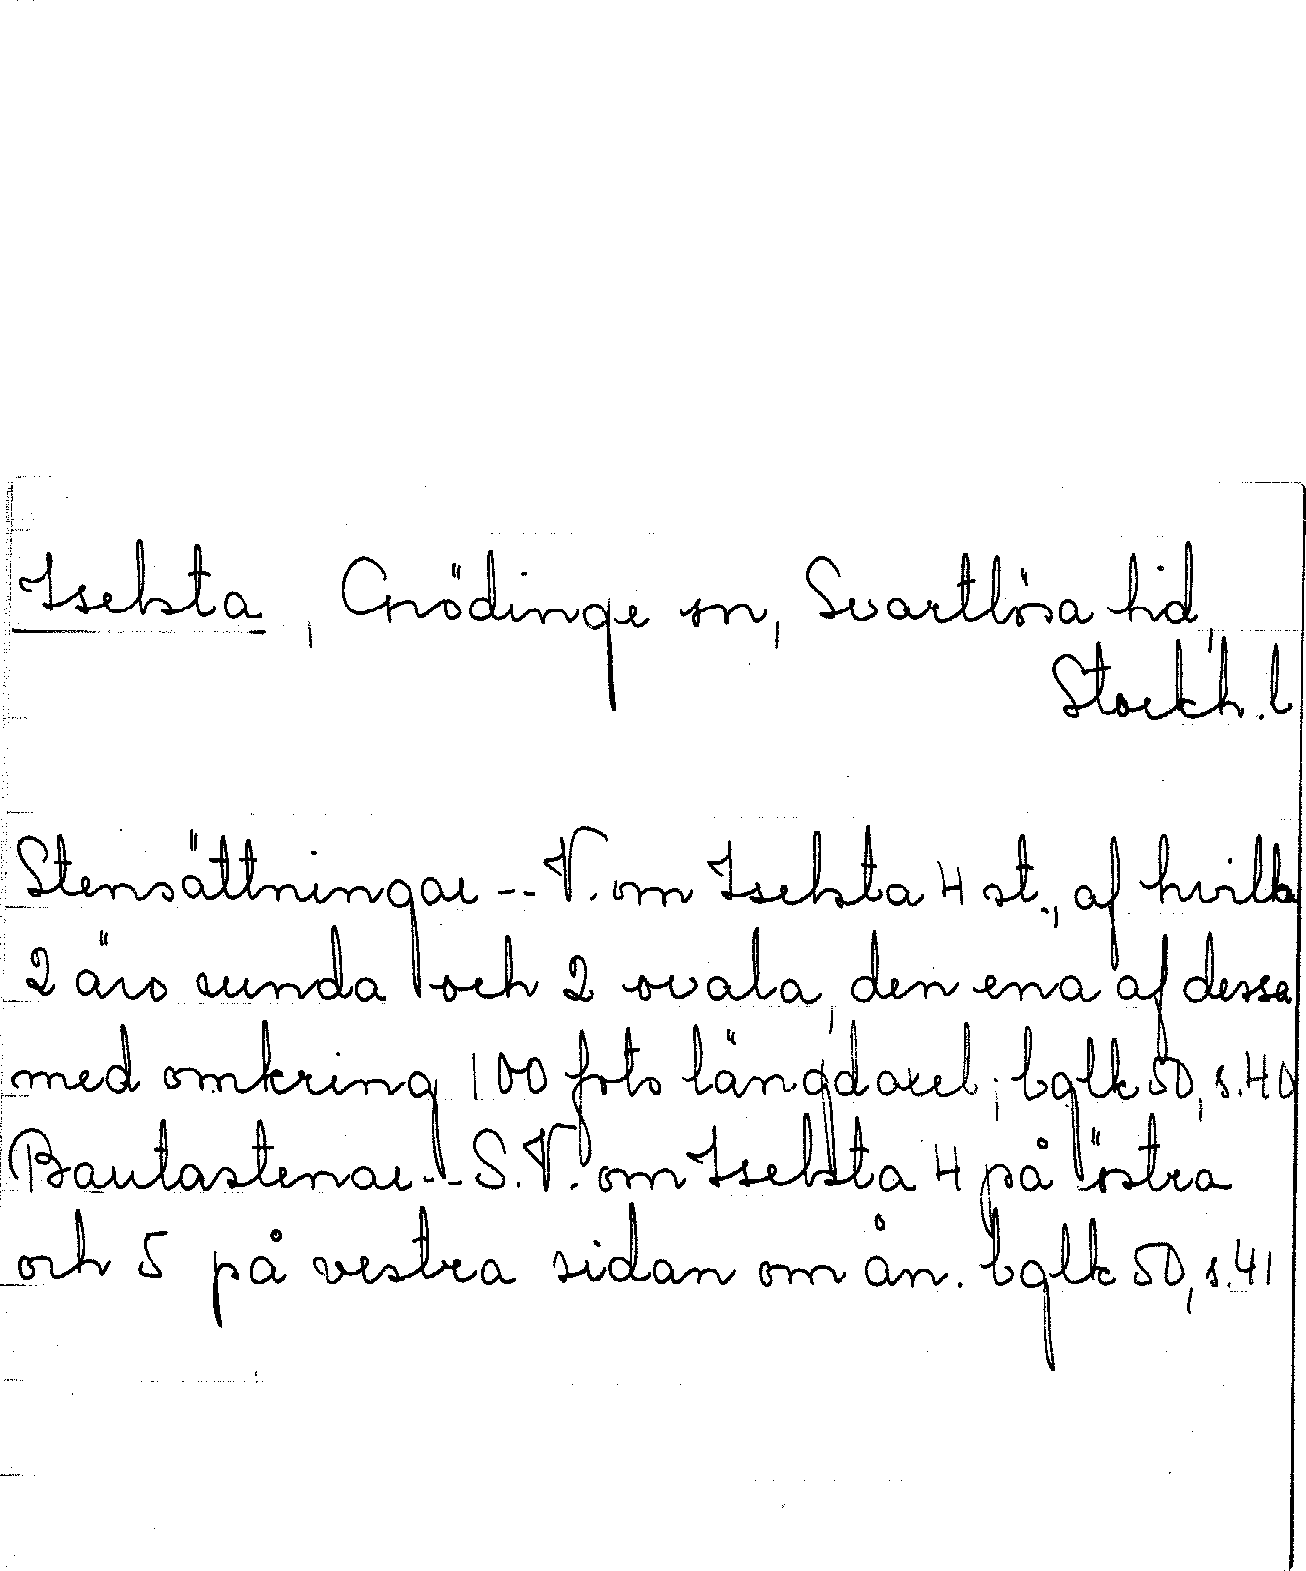 Iselsta, Grödinge sn, Svartlösa hd,
Stockh. l
Stensättningar -- V. om Iselsta 4 st., af hvilka
2 äro runda och 2 ovala, den ena af dessa
med omkring 100 fots längdaxel; bglk 50, s. 40
Bautastenar -- S.V. om Iselsta 4 på östra
och 5 på vestra sidan om ån. bglk 50, s. 41